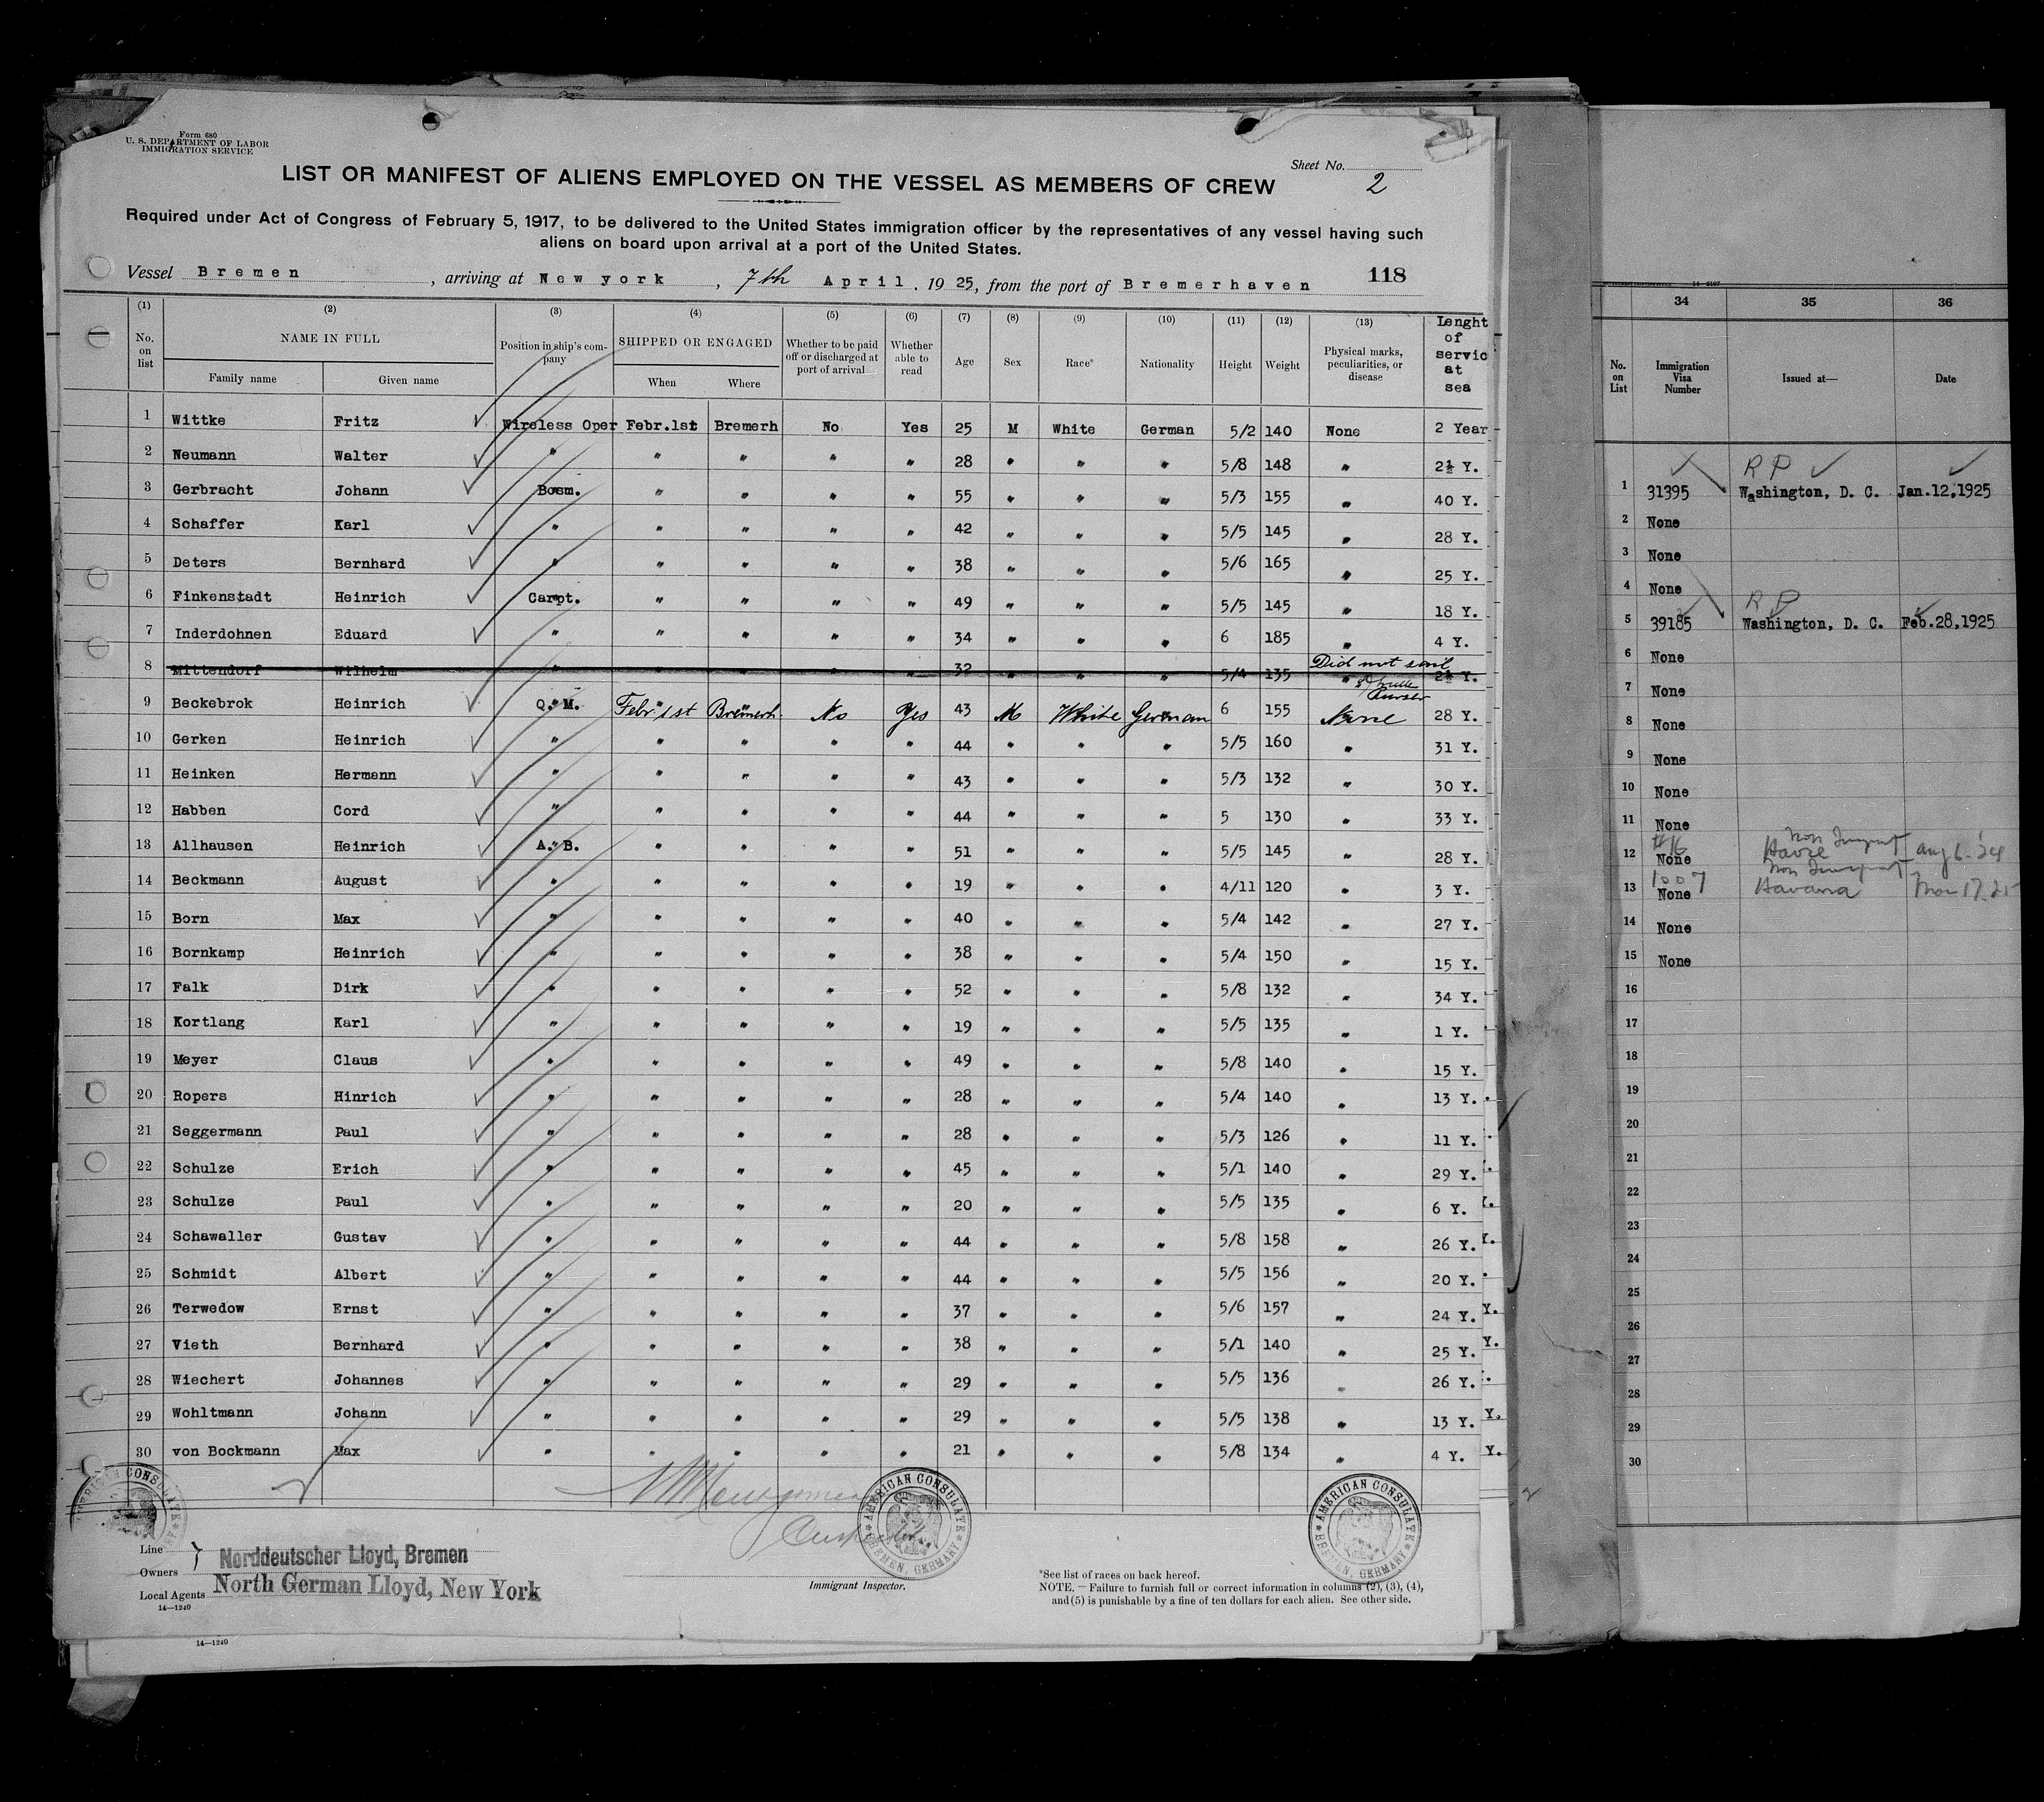 Form 680
U. S. DEPARTMENT OF LABOR
IMMIGRATION SERVICE
Sheet No. 2
LIST OR MANIFEST OF ALIENS EMPLOYED ON THE VESSEL AS MEMBERS OF CREW
Required under Act of Congress of February 5, 1917, to be delivered to the United States immigration officer by the representatives of any vessel having such
aliens on board upon arrival at a port of the United States.
Vessel Bremen, arriving at New york, 7th April, 1925, from the port of Bremerhaven 118
(1) (2) (3) (4) (5) (6) (7) (8) (9) (10) (11) (12) (13)
No. on list NAME IN FULL Family name Given name Position in ship's company SHIPPED OR ENGAGED When Where Whether to be paid off or discharged at port of arrival Whether able to read Age Sex Race* Nationality Height Weight Physical marks, peculiarities, or disease Lenght of servic at sea
1 Wittke Fritz Wireless Oper Febr.1st Bremerh No Yes 25 M White German 5/2 140 None 2 Year
2 Neumann Walter " " " " " 28 " " " 5/8 148 " 2½ Y.
3 Gerbracht Johann Bosm. " " " " 55 " " " 5/3 155 " 40 Y.
4 Schaffer Karl " " " " " 42 " " " 5/5 145 " 28 Y.
5 Deters Bernhard " " " " " 38 " " " 5/6 165 " 25 Y.
6 Finkenstadt Heinrich Carpt. " " " " 49 " " " 5/5 145 " 18 Y.
7 Inderdohnen Eduard " " " " " 34 " " " 6 185 " 4 Y.
8 Mittendorf Wilhelm " " " " " 32 " " " 5/4 135 " 2½ Y. Did not sail
9 Beckebrok Heinrich Q. M. Febr 1st Bremerh. No Yes 43 M White German 6 155 None 28 Y.
10 Gerken Heinrich " " " " " 44 " " " 5/5 160 " 31 Y.
11 Heinken Hermann " " " " " 43 " " " 5/3 132 " 30 Y.
12 Habben Cord " " " " " 44 " " " 5 130 " 33 Y.
13 Allhausen Heinrich A. B. " " " " 51 " " " 5/5 145 " 28 Y.
14 Beckmann August " " " " " 19 " " " 4/11 120 " 3 Y.
15 Born Max " " " " " 40 " " " 5/4 142 " 27 Y.
16 Bornkamp Heinrich " " " " " 38 " " " 5/4 150 " 15 Y.
17 Falk Dirk " " " " " 52 " " " 5/8 132 " 34 Y.
18 Kortlang Karl " " " " " 19 " " " 5/5 135 " 1 Y.
19 Meyer Claus " " " " " 49 " " " 5/8 140 " 15 Y.
20 Ropers Hinrich " " " " " 28 " " " 5/4 140 " 13 Y.
21 Seggermann Paul " " " " " 28 " " " 5/3 126 " 11 Y.
22 Schulze Erich " " " " " 45 " " " 5/1 140 " 29 Y.
23 Schulze Paul " " " " " 20 " " " 5/5 135 " 6 Y.
24 Schawaller Gustav " " " " " 44 " " " 5/8 158 " 26 Y.
25 Schmidt Albert " " " " " 44 " " " 5/5 156 " 20 Y.
26 Terwedow Ernst " " " " " 37 " " " 5/6 157 " 24 Y.
27 Vieth Bernhard " " " " " 38 " " " 5/1 140 " 25 Y.
28 Wiechert Johannes " " " " " 29 " " " 5/5 136 " 26 Y.
29 Wohltmann Johann " " " " " 29 " " " 5/5 138 " 13 Y.
30 von Bockmann Max " " " " " 21 " " " 5/8 134 " 4 Y.
AMERICAN CONSULATE BREMEN, GERMANY
AMERICAN CONSULATE BREMEN, GERMANY
Line
Owners Norddeutscher Lloyd, Bremen
Local Agents North German Lloyd, New York
14—1240
Immigrant Inspector.
*See list of races on back hereof.
NOTE. — Failure to furnish full or correct information in columns (2), (3), (4),
and (5) is punishable by a fine of ten dollars for each alien. See other side.
14—1240
34 35 36
No. on List Immigration Visa Number Issued at— Date
R P
1 31395 Washington, D. C. Jan.12,1925
2 None
3 None
4 None
R P
5 39185 Washington, D. C. Feb.28,1925
6 None
7 None
8 None
9 None
10 None
11 None
12 None Havre Aug 6-24
13 1007 None Havana Mar 17.25
14 None
15 None
16
17
18
19
20
21
22
23
24
25
26
27
28
29
30